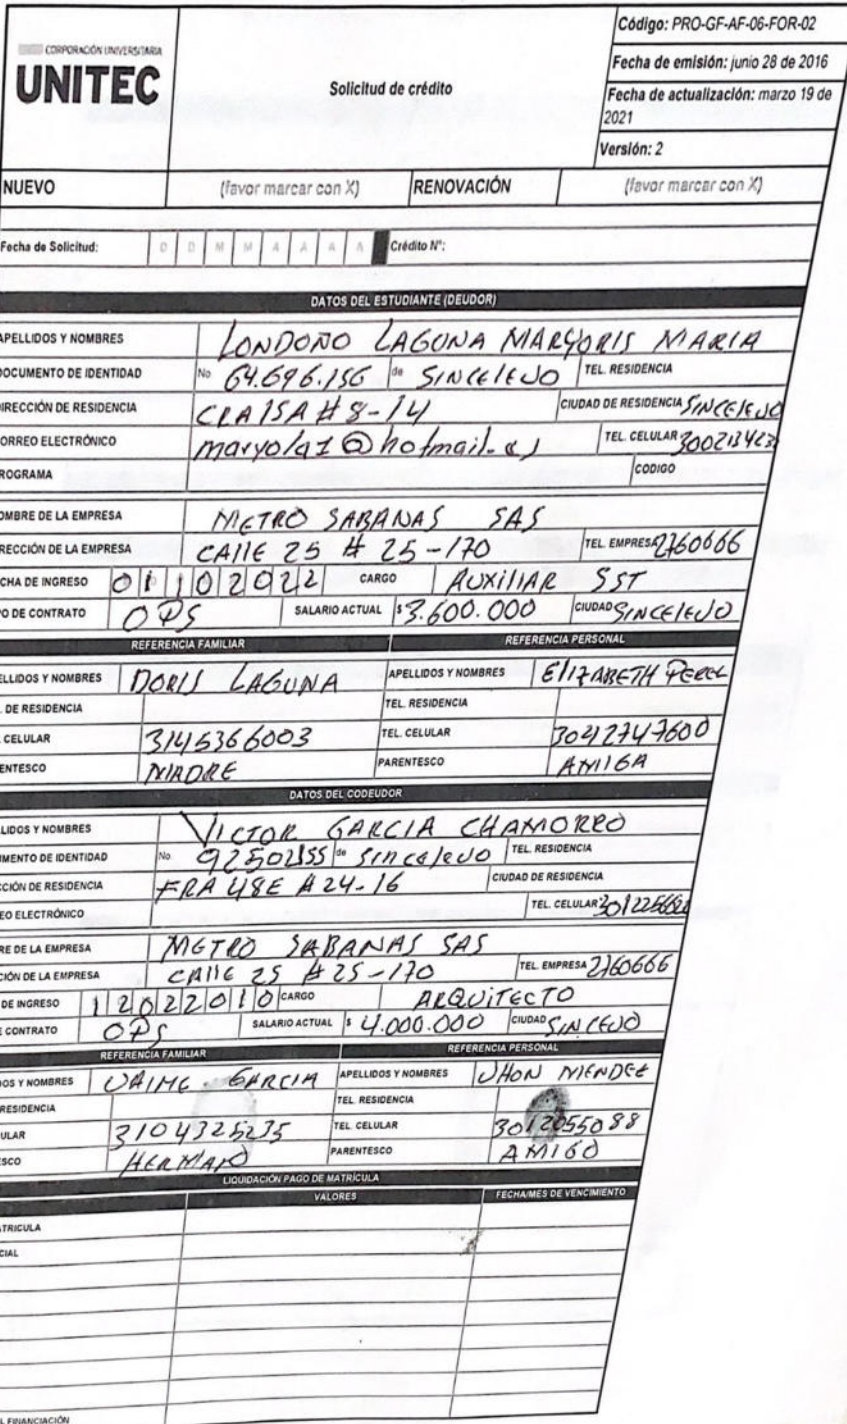 CORPORACIÓN UNIVERSITARIA
UNITEC
Solicitud de crédito
Código: PRO-GF-AF-06-FOR-02
Fecha de emisión: junio 28 de 2016
Fecha de actualización: marzo 19 de
2021
Versión: 2
NUEVO (favor marcar con X) RENOVACIÓN (favor marcar con X)
Fecha de Solicitud: D D M M A A A A Crédito N°:
DATOS DEL ESTUDIANTE (DEUDOR)
APELLIDOS Y NOMBRES LONDOÑO LAGUNA MARYORIS MARIA
DOCUMENTO DE IDENTIDAD No 64.696.156 de SINCELEJO TEL. RESIDENCIA
DIRECCIÓN DE RESIDENCIA CRA15A # 8-14 CIUDAD DE RESIDENCIA SINCELEJO
ORREO ELECTRÓNICO TEL. CELULAR
ROGRAMA CODIGO
OMBRE DE LA EMPRESA METRO SABANAS SAS
RECCIÓN DE LA EMPRESA CAllE 25 # 25-170 TEL. EMPRESA 2760666
CHA DE INGRESO 01102022 CARGO AUXILIAR SST
PO DE CONTRATO OPS SALARIO ACTUAL $ 3.600.000 CIUDAD SINCELEJO
REFERENCIA FAMILIAR REFERENCIA PERSONAL
ELLIDOS Y NOMBRES DORIS LAGUNA APELLIDOS Y NOMBRES ELIZABETH PEREZ
. DE RESIDENCIA TEL. RESIDENCIA
CELULAR 3145366003 TEL. CELULAR 30412747600
ENTESCO MADRE PARENTESCO AMIGA
DATOS DEL CODEUDOR
LIDOS Y NOMBRES VICTOR GARCIA CHAMORRO
MENTO DE IDENTIDAD No. de Sincelejo TEL. RESIDENCIA
CCIÓN DE RESIDENCIA 48E # 24-16 CIUDAD DE RESIDENCIA
EO ELECTRÓNICO TEL. CELULAR
RE DE LA EMPRESA METRO SABANAS SAS
CIÓN DE LA EMPRESA CAllE 25 # 25-170 TEL. EMPRESA 2760666
DE INGRESO 12022010 CARGO ARQUITECTO
E CONTRATO OPS SALARIO ACTUAL $ 4.000.000 CIUDAD SINCEJO
REFERENCIA FAMILIAR REFERENCIA PERSONAL
DOS Y NOMBRES JAIME GARCIA APELLIDOS Y NOMBRES JHON MENDEZ
RESIDENCIA TEL. RESIDENCIA
ULAR 3104325235 TEL. CELULAR 3012055088
SCO HERMANO PARENTESCO AMIGO
LIQUIDACIÓN PAGO DE MATRÍCULA
VALORES FECHA/MES DE VENCIMIENTO
ATRICULA
CIAL
L FINANCIACIÓN